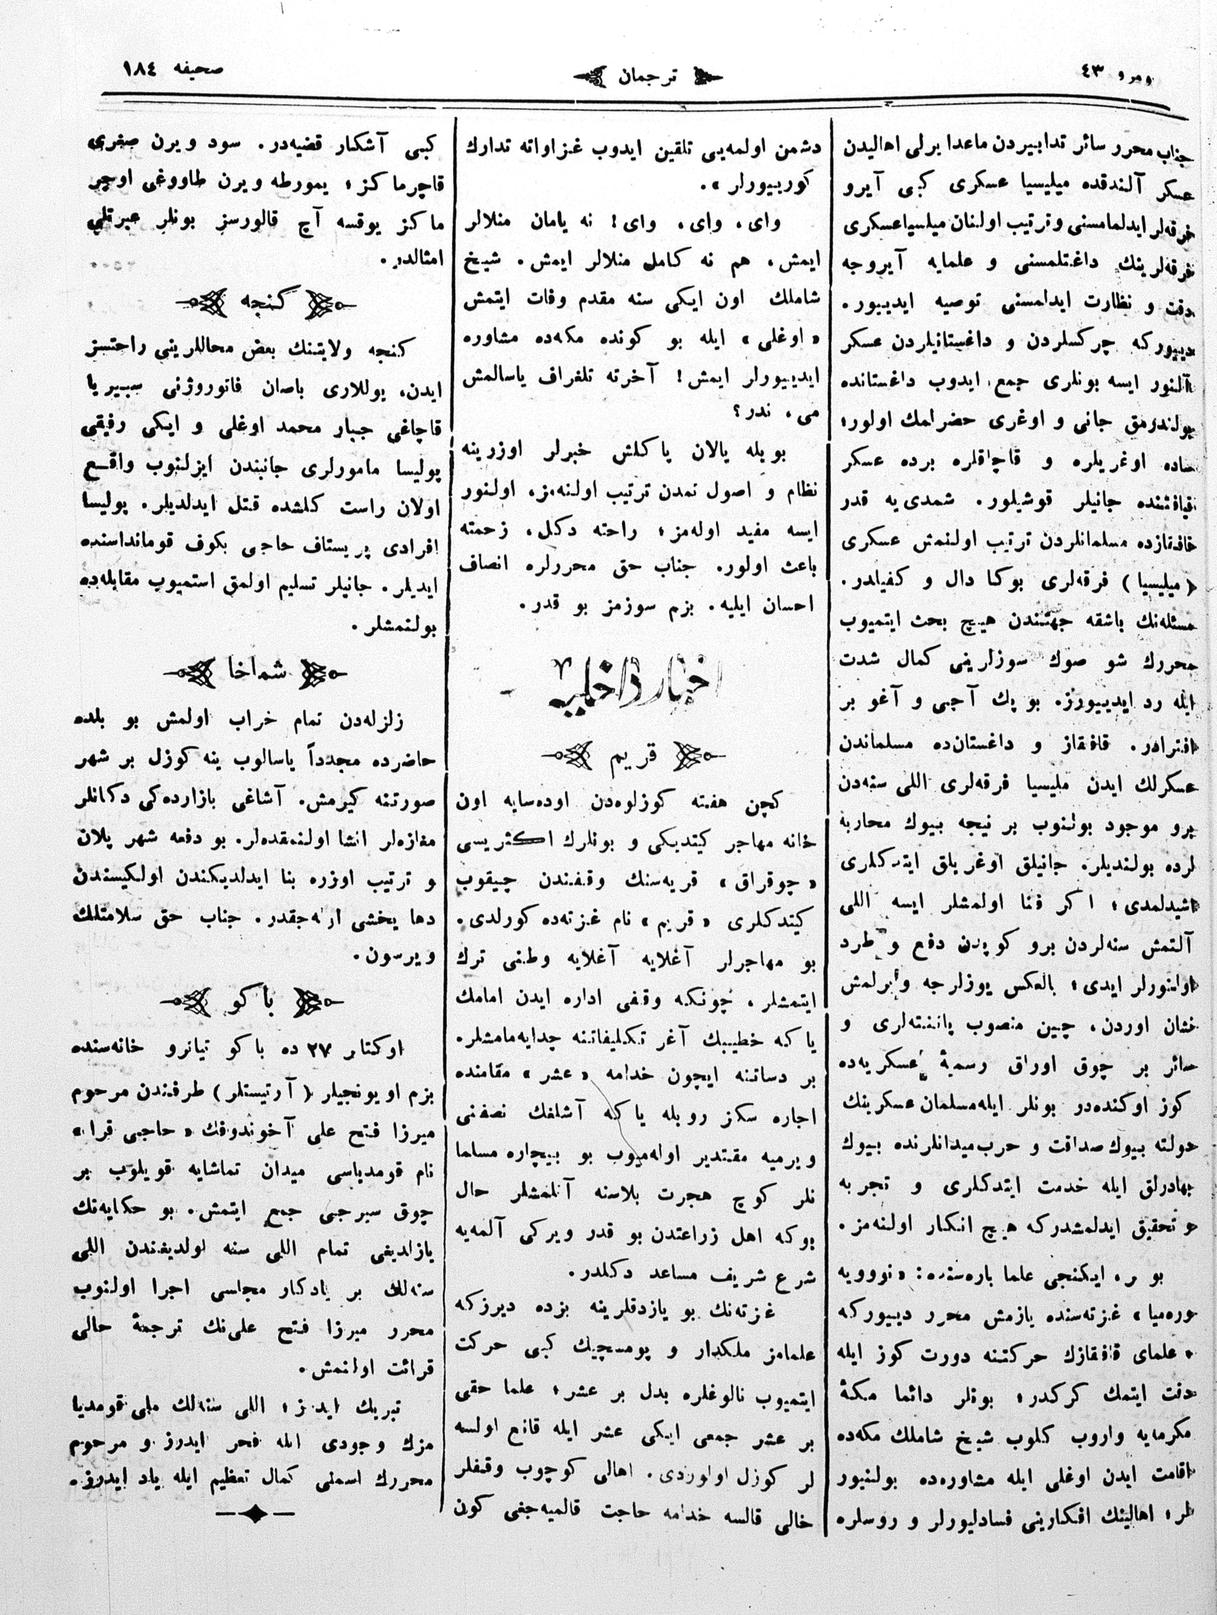 ومرو ٤٣
ترجمان
صحيفه ١٨٤
جناب محرر سائر تدابيردن ماعدا يرلى اهاليدن
عسكر آلندقده ميليسيا عسكرى كبى آيرو
فرقه‌لر ايدلمامسنى و ترتيب اولنان ميليسيا عسكرى
فرقه‌لرينك داغتلمسنى و علمايه آيروجه
دقت و نظارت ايدلمسنى توصيه ايدييور.
دييوركه چركسلردن و داغستانيلردن عسكر
آلنور ايسه بونلرى جمع ايدوب داغستانده
بولندرمق جانى و اوغرى حضرلمك اولور؛
ساده اوغريلره و قاچاقلره برده عسكر
قيافتنده جانيلر قوشيلور. شمدى‌يه قدر
قافقازده مسلمانلردن ترتيب اولنمش عسكرى
(ميليسيا) فرقه‌لرى بوكا دال و كفيلدر.
مسئله‌نك باشقه جهتندن هيچ بحث ايتميوب
محررك شو صوك سوزلرينى كمال شدت
ايله رد ايدييورز. بو پك آجى و آغو بر
افترادر. قافقاز و داغستان‌ده مسلماندن
عسكرلك ايدن مليسيا فرقه‌لرى اللى سنه‌دن
برو موجود بولنوب بر نيجه بيوك محاربه
لرده بولنديلر. جانيلق اوغريلق ايتدكلرى
اشيدلمدى؛ اكر فنا اولمشلر ايسه اللى
آلتمش سنه‌لردن برو كوپدن دفع و طرد
اولنورلر ايدى؛ بالعكس يوزلرجه ويرلمش
نشان اوردن، چين منصوب پاتنته‌لرى و
سائر بر چوق اوراق رسميهٔ عسكريه‌ده
كوز اوكنده‌در بونلر ايله مسلمان عسكرينك
دولته بيوك صداقت و حرب ميدانلرنده بيوك
بهادرلق ايله خدمت ايتدكلرى و تجربه
و تحقيق ايدلمشدركه هيچ انكار اولنه‌مز.
بو بر، ايكنجى علما باره‌سنده: «نوويه
وره‌ميا» غزته‌سنده يازمش محرر دييوركه
«علماى قافقازك حركتنه دورت كوز ايله
دقت ايتمك كركدر؛ بونلر دائما مكهٔ
مكرمه‌يه واروب كلوب شيخ شاملك مكه‌ده
اقامت ايدن اوغلى ايله مشاوره‌ده بولنيور
لر؛ اهالينك افكارينى فساد‌ليورلر و روسلره
دشمن اولمه‌يى تلقين ايدوب غزاواته تدارك
كوريورلر».
واى، واى، واى! نه يامان منلالر
ايمش، هم نه كامل منلالر ايمش. شيخ
شاملك اون ايكى سنه مقدم وفات ايتمش
«اوغلى» ايله بو كونده مكه‌ده مشاوره
ايدييورلر ايمش! آخرته تلغراف ياسالمش
مى، ندر؟
بويله يالان ياكلش خبرلر اوزرينه
نظام و اصول تمدن ترتيب اولنه‌مز، اولنور
ايسه مفيد اوله‌مز؛ راحته دكل، زحمته
باعث اولور. جناب حق محررلره انصاف
احسان ايليه. بزم سوزمز بو قدر.
اخبار داخليه
قريم
كچن هفته كوزلوه‌دن اوده‌سايه اون
خانه مهاجر كيتديكى و بونلرك اكثريسى
«چوقراق» قريه‌سنك وقفندن چيقوب
كيتدكلرى «قريم» نام غزته‌ده كورلدى.
بو مهاجرلر آغلايه آغلايه وطنى ترك
ايتمشلر، چونكه وقفى اداره ايدن امامك
ياكه خطيبك آغر تكليفاتنه چدايه‌مامشلر.
بر دساتنه ايچون خدامه «عشر» مقامنده
اجاره سكز روبله ياكه آشلقك نصفنى
ويرميه مقتدر اوله‌ميوب بو بيچاره مسلما
نلر كوچ هجرت بلاسنه آنلمشلر حال
بوكه اهل زراعتدن بو قدر ويركى آلمه‌يه
شرع شريف مساعد دكلدر.
غزته‌نك بو يازدقلرينه بزده ديرزكه
علمامز ملكدار و پومسچيك كبى حركت
ايتميوب نالوغلره بدل بر عشر؛ علما حقى
بر عشر جمعى ايكى عشر ايله قانع اولسه
لر كوزل اولوردى. اهالى كوچوب وقفلر
خالى قالسه خدامه حاجت قالميه‌جغى كون
كبى آشكار قضيه‌در. سود ويرن صغرى
قاچرماكز؛ يمورطه ويرن طاووغى اوچر
ماكز يوقسه آچ قالورسز بونلر عبرتلى
امثالدر.
كنجه
كنجه ولايتنك بعض محاللرينى راحتسز
ايدن، يوللارى باصان قانوروژنى سيبيريا
قاچاغى جبار محمد اوغلى و ايكى رفيقى
پوليسا مامورلرى جانبندن ايزلنوب واقع
اولان راست كلشده قتل ايدلديلر. پوليسا
افرادى پريستاف حاجى بكوف قومانداسنده
ايديلر. جانيلر تسليم اولمق استميوب مقابله‌ده
بولنمشلر.
شماخا
زلزله‌دن تمام خراب اولمش بو بلده
حاضرده مجدداً ياسالوب ينه كوزل بر شهر
صورتنه كيرمش. آشاغى بازارده‌كى دكانلر
مغازه‌لر انشا اولنمقده‌لر. بو دفعه شهر پلان
و ترتيب اوزره بنا ايدلديكندن اولكيسندن
دها يخشى اوله‌جقدر. جناب حق سلامتلك
ويرسون.
باكو
اوكتابر ٢٧ ده باكو تياترو خانه‌سنده
بزم اويونجيلر (آرتيستلر) طرفندن مرحوم
ميرزا فتح على آخوندوفك «حاجى قرا»
نام قومدياسى ميدان تماشايه قويلوب بر
چوق سيرجى جمع ايتمش. بو حكايه‌نك
يازلديغى تمام اللى سنه اولديغندن اللى
سنه‌لك بر يادكار مجلسى اجرا اولنوب
محرر ميرزا فتح على‌نك ترجمهٔ حالى
قرائت اولنمش.
تبريك ايدرز؛ اللى سنه‌لك ملى قومديا
مزك وجودى ايله فخر ايدرز و مرحوم
محررك اسمنى كمال تعظيم ايله ياد ايدرز.